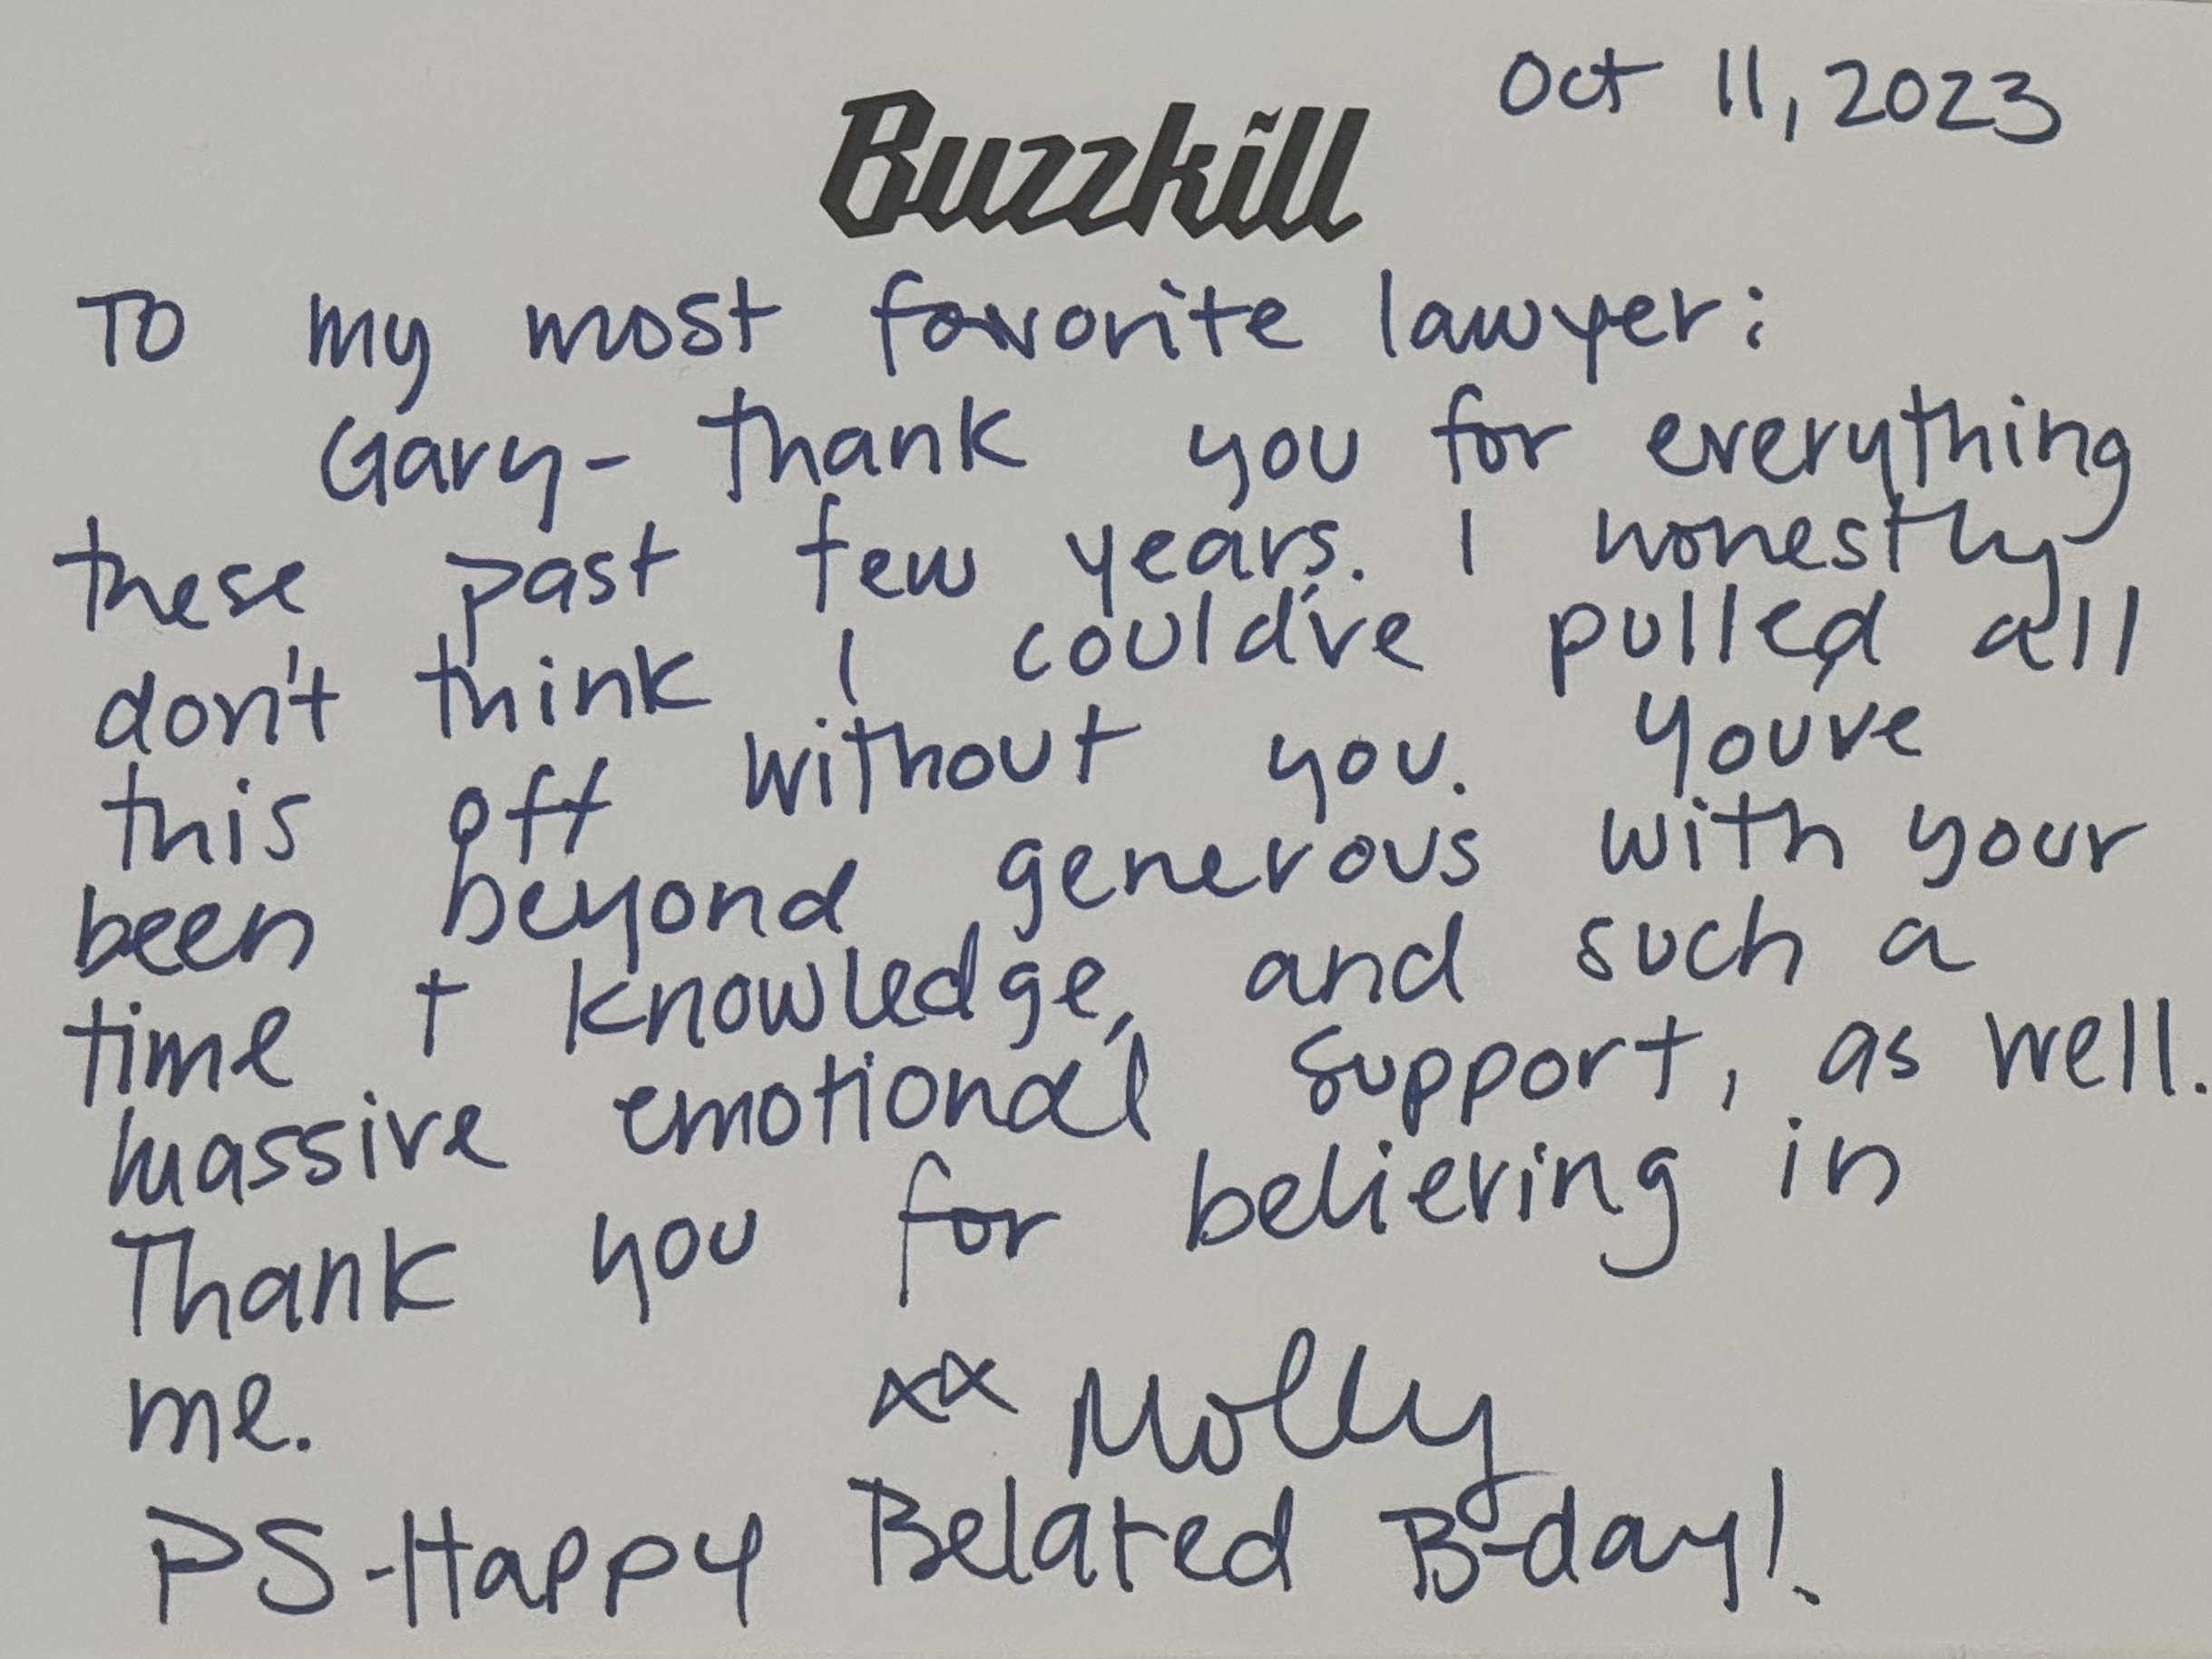 Oct 11, 2023
Buzzkill
To my most favorite lawyer:
Gary- Thank you for everything
these past few years. I honestly
don't think I could've pulled all
this off without you. You've
been beyond generous with your
time + knowledge, and such a
massive emotional support, as well.
Thank you for believing in
me.
xx Molly
PS-Happy Belated B-day!